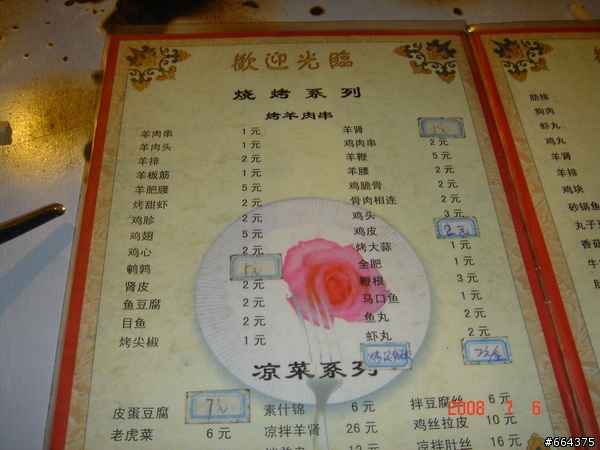 歡迎光臨
烧烤系列
烤羊肉串
羊肉串 1元 羊肾
羊肉头 1元 鸡肉串 2元
羊排 2元 羊鞭 5元
羊板筋 1元 羊腰 2元
羊肥腰 5元 鸡脆骨 2元
烤甜虾 2元 骨肉相连 2元
鸡胗 2元 鸡头 3元
鸡翅 5元 鸡皮 2元
鸡心 2元 烤大蒜 1元
鹌鹑 全肥 1元
肾皮 2元 鞭根 3元
鱼豆腐 2元 马口鱼 1元
目鱼 2元 鱼丸 2元
烤尖椒 1元 虾丸 2元
凉菜系列
皮蛋豆腐 7元 素什锦 6元 拌豆腐丝 6元
老虎菜 6元 凉拌羊肾 26元 鸡丝拉皮 10元
12元 凉拌肚丝 16元
肋排
狗肉
虾丸
鸡丸
羊肾
羊排
鸡块
砂锅鱼
丸子
香菇
牛
2008 7 6
#664375